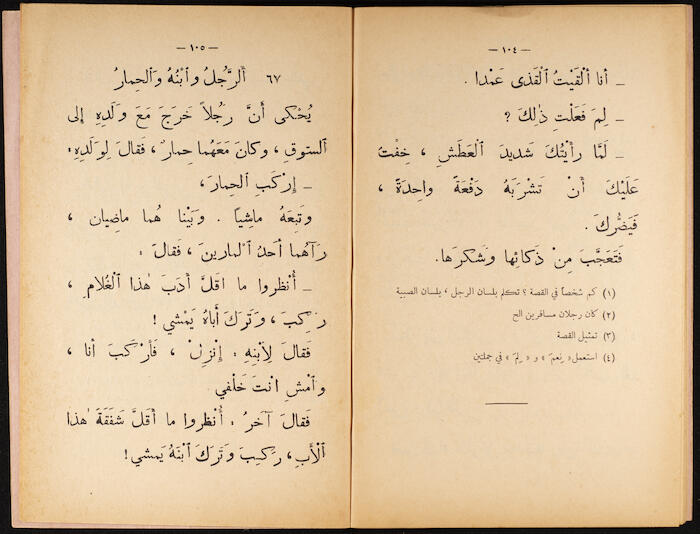 — ١٠٤ —
ــ أنا أَلْقَيْتُ ٱلْقَذى عَمْدا .
ــ لِمَ فَعَلْتِ ذٰلِكَ ؟
ــ لَمَّا رَأَيْتُكَ شَديدَ ٱلْعَطَشِ ، خِفْتُ
عَلَيْكَ أَنْ تَشْرَبَهُ دَفْعَةً واحِدَةً ،
فَيَضُرُّكَ .
فَتَعَجَّبَ مِنْ ذَكائِها وَشَكَرَها.
(١) كم شخصاً في القصة ؟ تكلم بلسان الرجل ، بلسان الصبية
(٢) كان رجلان مسافرين الخ
(٣) تمثيل القصة
(٤) استعمل « نِعمَ » و « لِمَ » في جملتين
— ١٠٥ —
٦٧ أَلرَّجُلُ وَٱبْنُهُ وَٱلْحِمارُ
يُحْكى أَنَّ رَجُلاً خَرَجَ مَعَ وَلَدِهِ إِلى
ٱلسّوقِ ، وَكانَ مَعَهُما حِمارٌ ، فَقالَ لِوَلَدِهِ :
ــ إِرْكَبِ ٱلْحِمارَ،
وَتَبِعَهُ ماشِياً . وَبَيْنا هُما ماضِيان ،
رَآهُما أَحَدُ ٱلْمارِينَ ، فَقالَ :
ــ أُنْظُروا ما اقَلَّ أَدَبَ هٰذا ٱلْغُلامِ ،
رَكِبَ ، وَتَرَكَ أَباهُ يَمْشي !
فَقالَ لِأَبْنِهِ : إِنْزِلْ ، فَأَرْكَبَ أَنا ،
وَٱمْشِ انْتَ خَلْفي
فَقالَ آخَرُ : أُنْظُروا ما أَقَلَّ شَفَقَةَ هٰذا
ٱلْأَبِ ، رَكِبَ وَتَرَكَ ٱبْنَهُ يَمْشي !